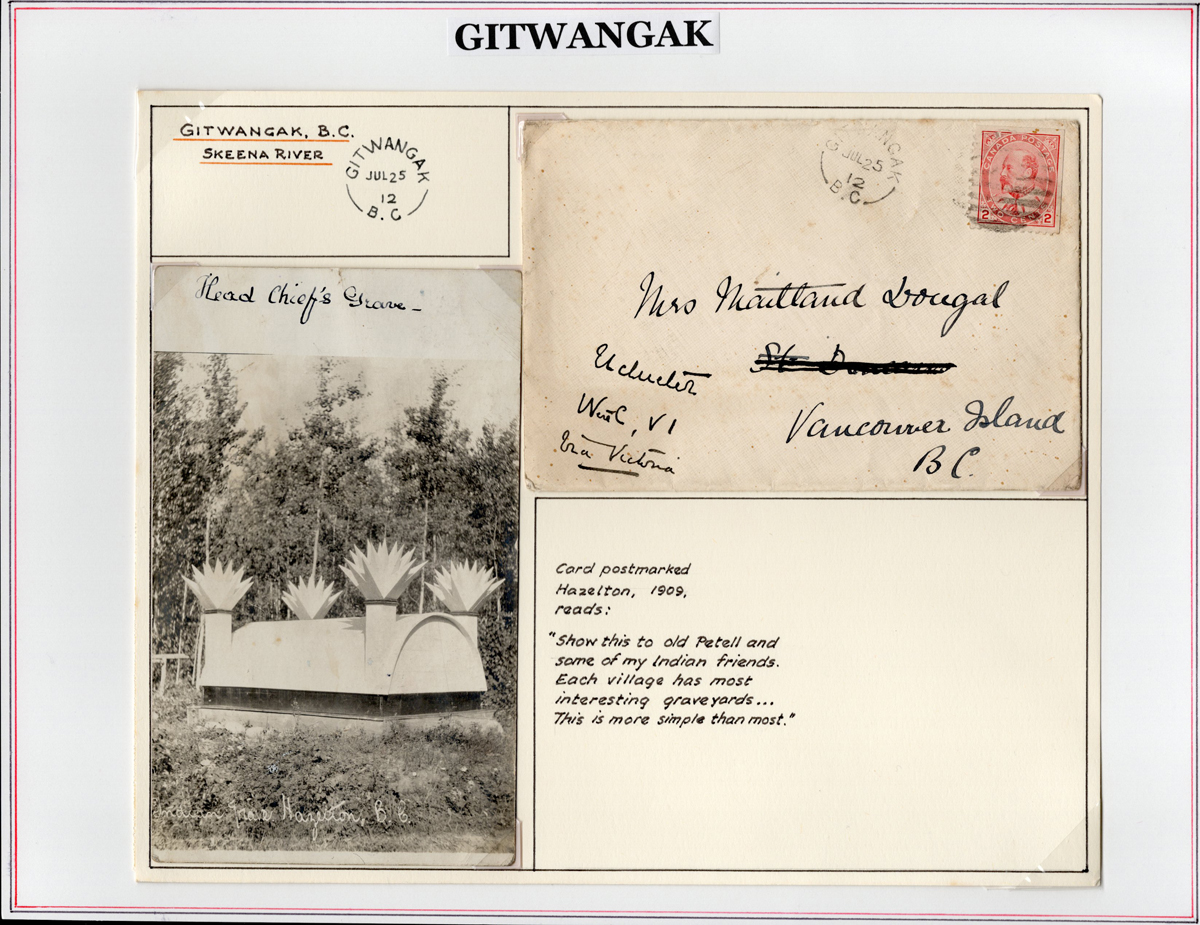 GITWANGAK
GITWANGAK, B.C.
SKEENA RIVER
GITWANGAK
JUL 25
12
B.C
GITWANGAK
JUL 25
12
B.C
CANADA POSTAGE
2 CENTS 2
Mrs Maitland Dougal
Vancouver Island
B C.
Ucluelet
West, VI
Via Victoria
Head Chief's Grave -
Hazelton, B.C.
Card postmarked
Hazelton, 1909,
reads:
"Show this to old Petell and
some of my Indian friends.
Each village has most
interesting graveyards...
This is more simple than most."